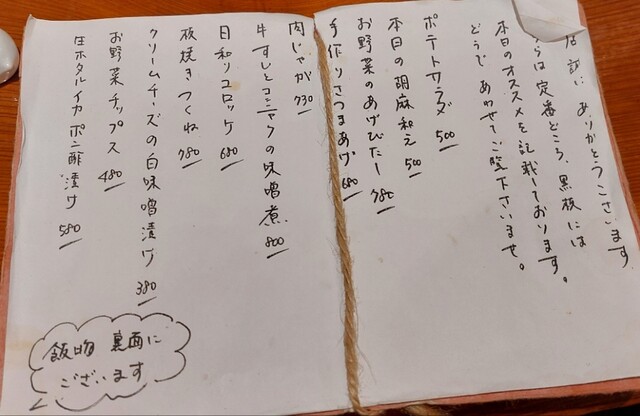 ありがとうございます。
らは定番どころ、黒板には
本日のオススメを記載しております。
どうぞあわせてご覧下さいませ。
ポテトサラダ 500
本日の胡麻和え 500
お野菜のあげびたし 780
手作りさつまあげ 680
肉じゃが 730
牛すじとコンニャクの味噌煮 800
日和リコロッケ 680
板焼きつくね 780
クリームチーズの白味噌漬け 380
お野菜チップス 480
生ホタルイカ ポン酢漬け 580
飯物 裏面に
ございます